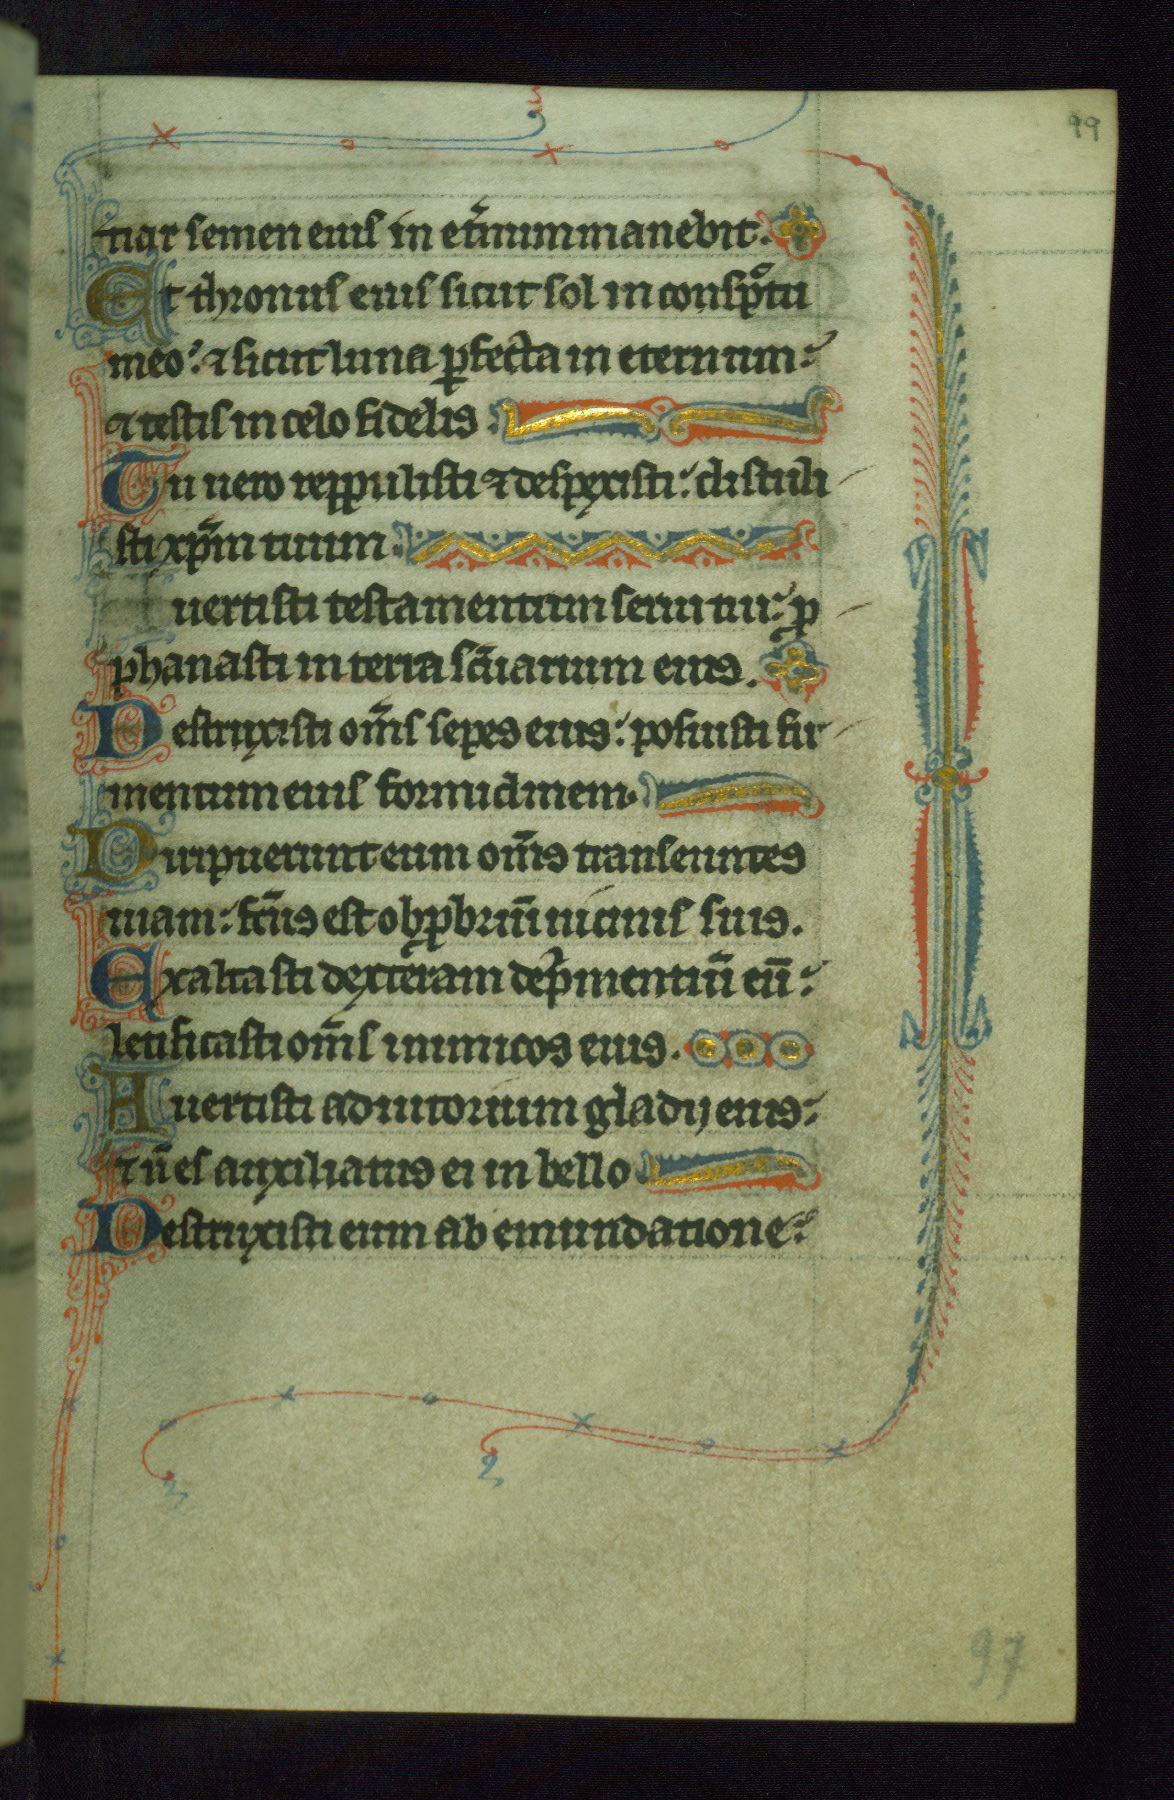 99
tiar semen eius in et̄num manebit.
Et thronus eius sicut sol in consp̄ctu
meo: & sicut luna ꝑfecta in eternum:
& testis in celo fidelis.
Tu uero reppulisti & despexisti: distuli
sti xp̄m tuum.
uertisti testamentum serui tui: ꝓ
phanasti in terra sc̄uarium eius.
Destruxisti om̄s sepes eius: posuisti fir
mentum eius formidinem.
Diripuerunt eum om̄s transeuntes
uiam: fc̄us est obꝓbriū uicinis suis.
Exaltasti dexteram dep̄mentiū eū:
letificasti om̄s inimicos eius.
Auertisti adiutorium gladij eius:
& ñ es auxiliatus ei in bello
Destruxisti eum ab emundatione:
97